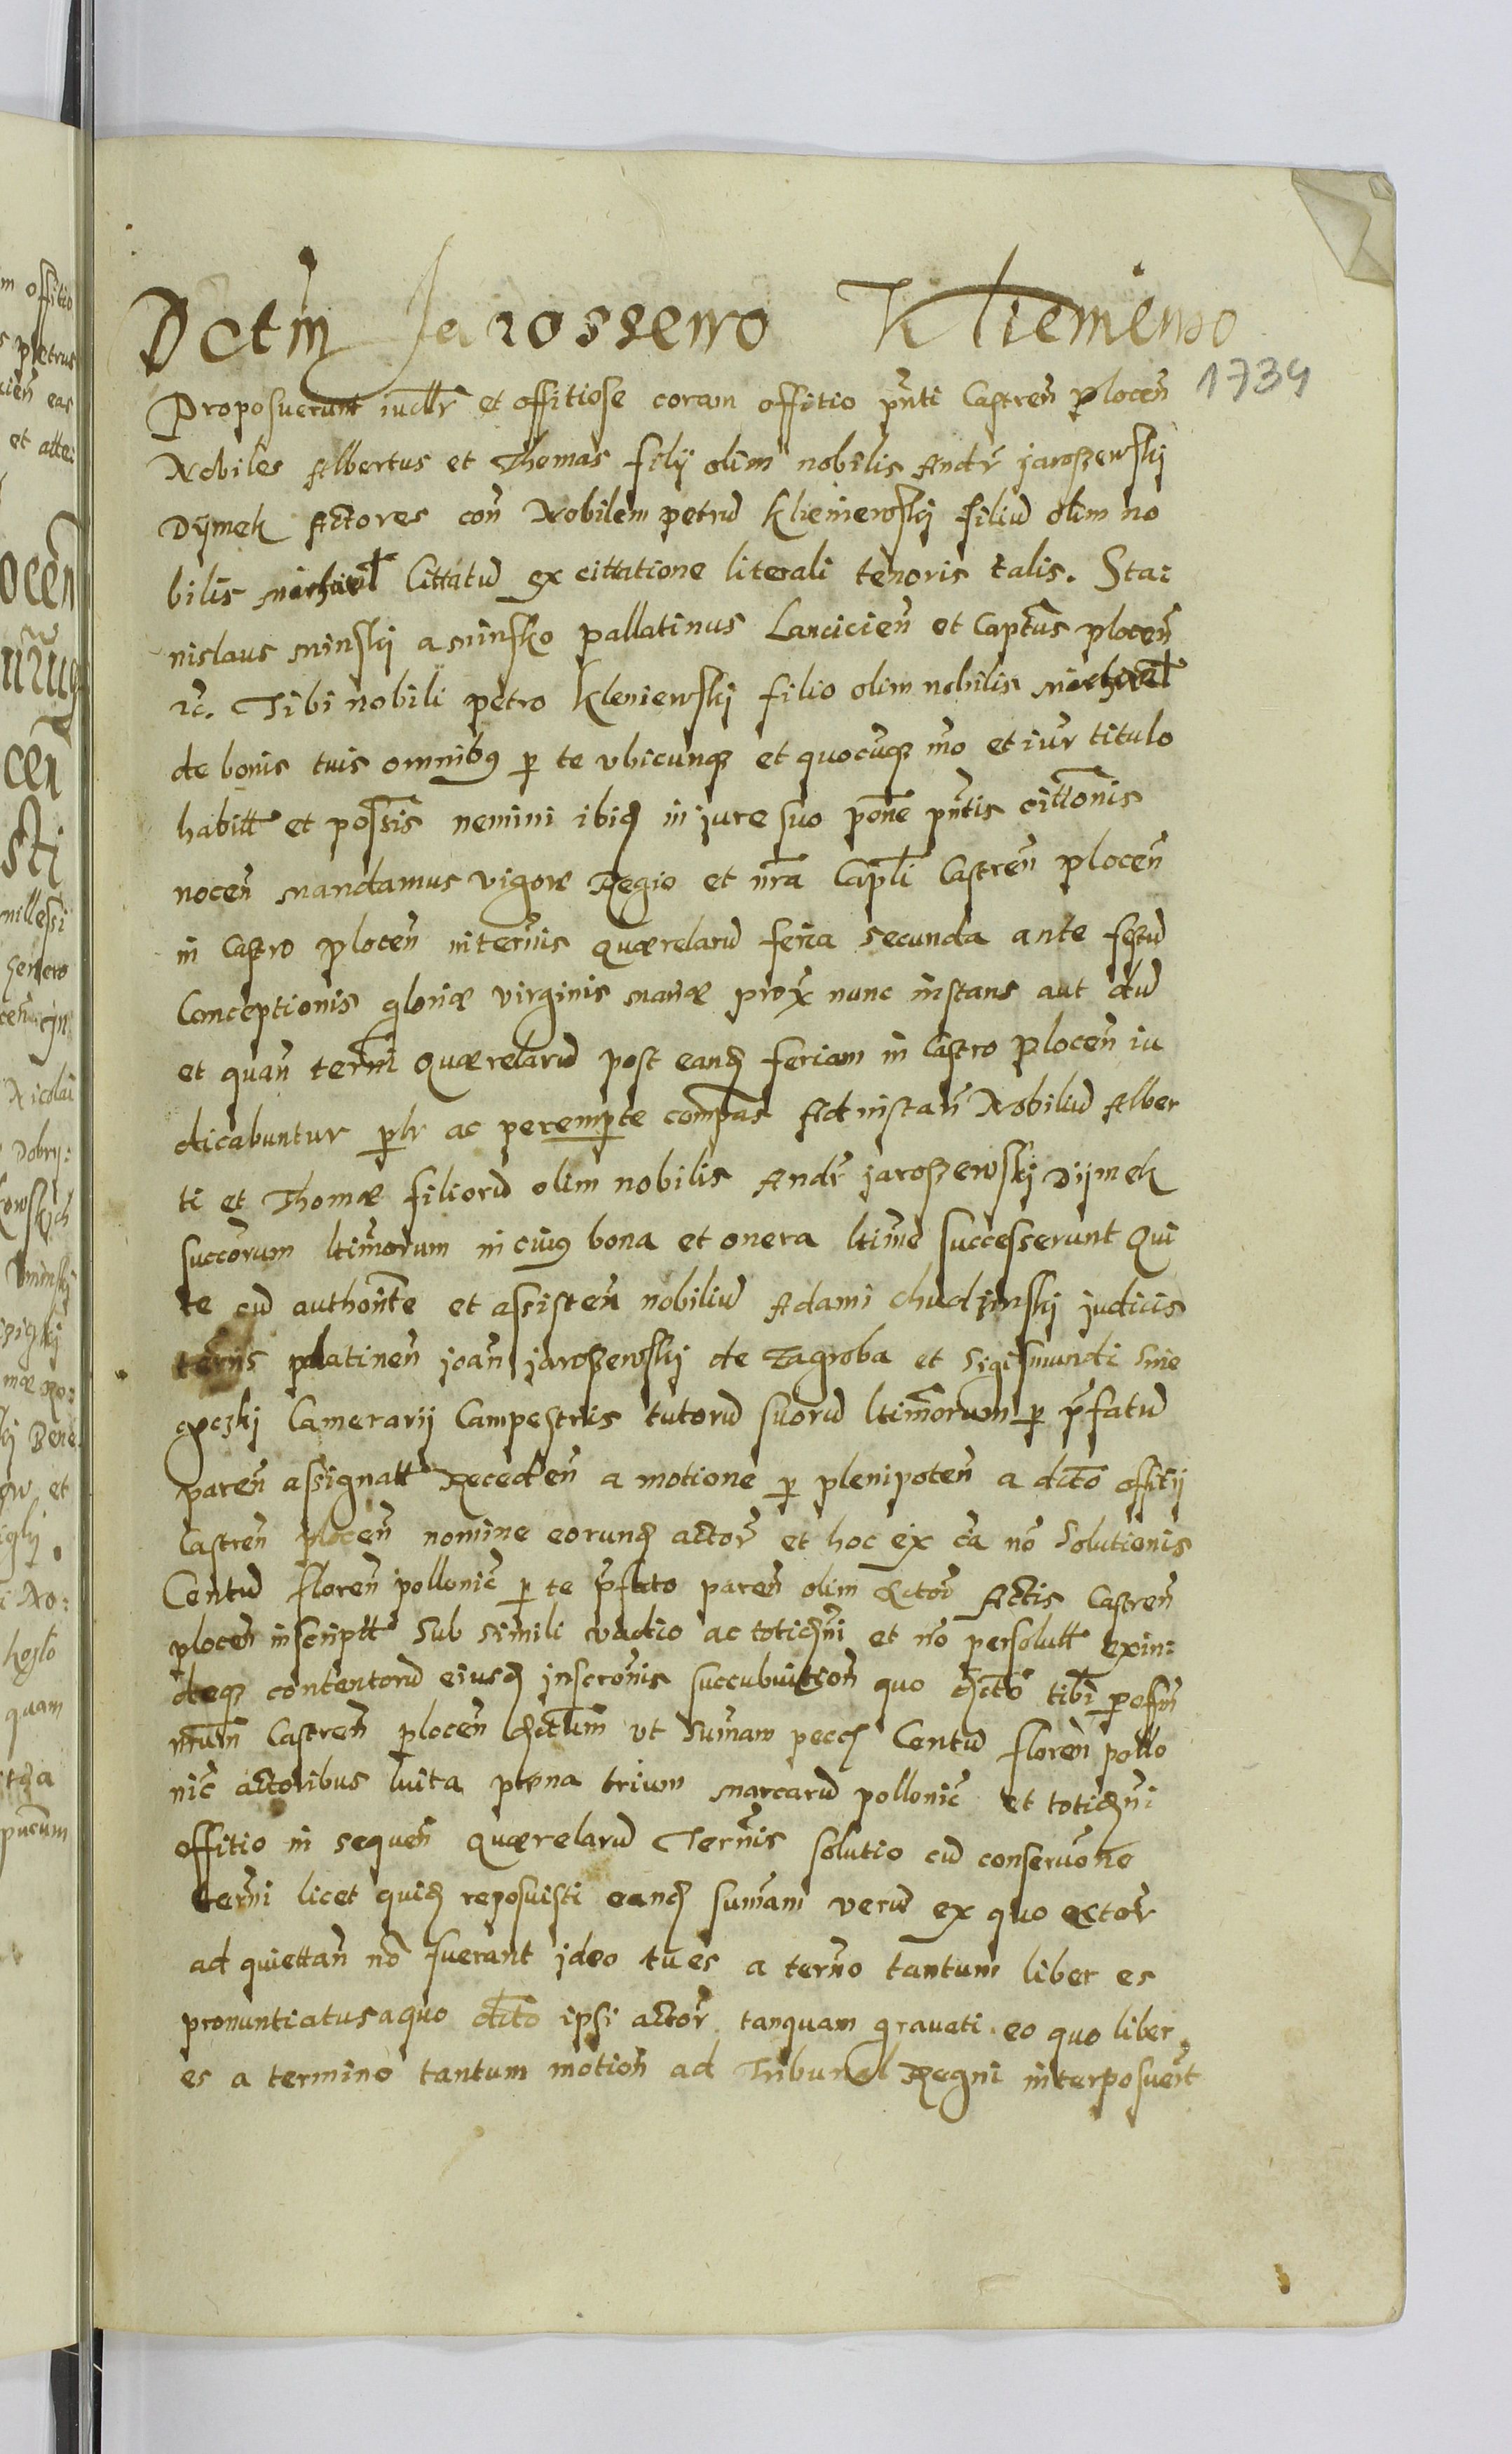 Dctm̃ Jarossewo Kliemiewo
1734
Proposuerunt iudllr̃ et offitiose coram offitio pñti Castreñ plocen̄
Nobiles Albertus et Thomas filij olim nobilis Andr̃ jaroszewskj
Dymek Actores con̄ Nobilem petrū Klieniewskj filiū olim no
bilis Michael Cittatū ex cittatione literali tenoris talis. Sta:
nislaus Minskj a Minsko pallatinus Lancicien̄ et Capt̄us plocen̄
zc̃. Tibi nobili petro Kleniewskj filio olim nobilis Michael
de bonis tuis omnibꝯ ꝑ te vbicunqꝫ et quocūqꝫ mõ et iur̃ titulo
habitt̃ et possīs nemini ibidꝫ in jure suo põne pñtis cittõnis
nocen̄ Mandamus vigore Regio et nr̄a Capl̄i Castren̄ plocen̄
in Castro plocen̄ in term̄is quærelarū feria secunda ante festū
Conceptionis gloriæ virginis Mariæ prox̄ nunc instans aut dū
et quan̄ term̄i Quærelarū post eandꝫ feriam in Castro plocen̄ iu
dicabuntur ꝑlr ac perempte compās Ad instan̄ Nobiliū Alber
ti et Thomæ filiorū olim nobilis Andr̃ jaroszewskj Dijmek
succōrum ltim̄orum in cuiꝯ bona et onera ltime successerunt Qui
te cū authorit̄e et assisten̄ nobiliū Adami chudzinskj judicis
term̄s palatinen̄ joan̄ jaroszewskj de Zagroba et Sigismundi Mie
Camerarij Campestris tutorū suorū ltim̄orum ꝑ p̄fatū
paren̄ assignatt̃ Receden̄ a motione ꝑ plenipoten̄ a dcto offitij
Castren̄ plocen̄ nomine eorundꝫ actor̃ et hoc ex cā nō Solutionis
Centū floren̄ pollonic̃ ꝑ te p̄fato paren̄ olim Actor̃ Actis Castren̄
plocen̄ inscriptt̃ Sub simili vadio ac totidꝫm̄i et nō persolutt̃ exin:
deqꝫ contentorū eiusdꝫ inscrōnis succubuition̄ quo dcto tibi
Castren̄ plocen̄ dctum̄ vt Sum̄am pecc̃ Centū floren̄ pollo
nic̃ actoribus luita pœna trium Marcarū pollonic̃ et totidꝫm̄i
offitio in sequen̄ quærelarū Term̄is solutio cū conseruōne
term̄i licet quidꝫ reposuisti eandꝫ sum̄am verū ex quo actor̃
ad quiettan̄ nō fuerant jdeo tu es a term̄o tantum liber es
pronuntiatus a quo dcto ipsi actor̃ tanquam grauati eo quo liber
es a termino tantum motion̄ ad Tribunal Regni interposuer̄t